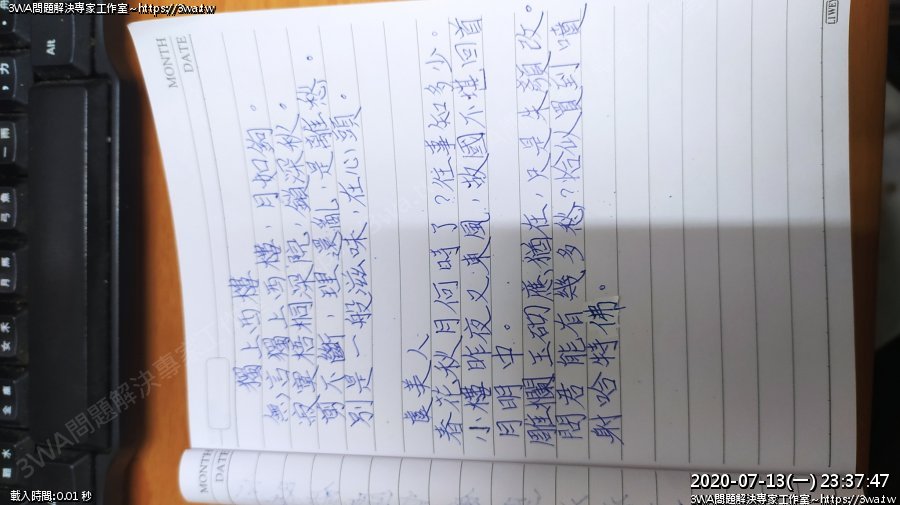 3WA問題解決專家工作室~https://3wa.tw
MONTH
DATE
獨上西樓
無言獨上西樓，月如鉤。
寂寞梧桐深院，鎖深秋。
剪不斷，理還亂，是離愁。
別是一般滋味，在心頭。
虞美人
春花秋月何時了？往事知多少。
小樓昨夜又東風，故國不堪回首
月明中。
雕欄玉砌應猶在，只是朱顏改。
問君能有幾多愁？恰似遇到噴
射哈特佛。
MONTH
DATE
Alt
載入時間:0.01 秒
2020-07-13(一) 23:37:47
3WA問題解決專家工作室~https://3wa.tw